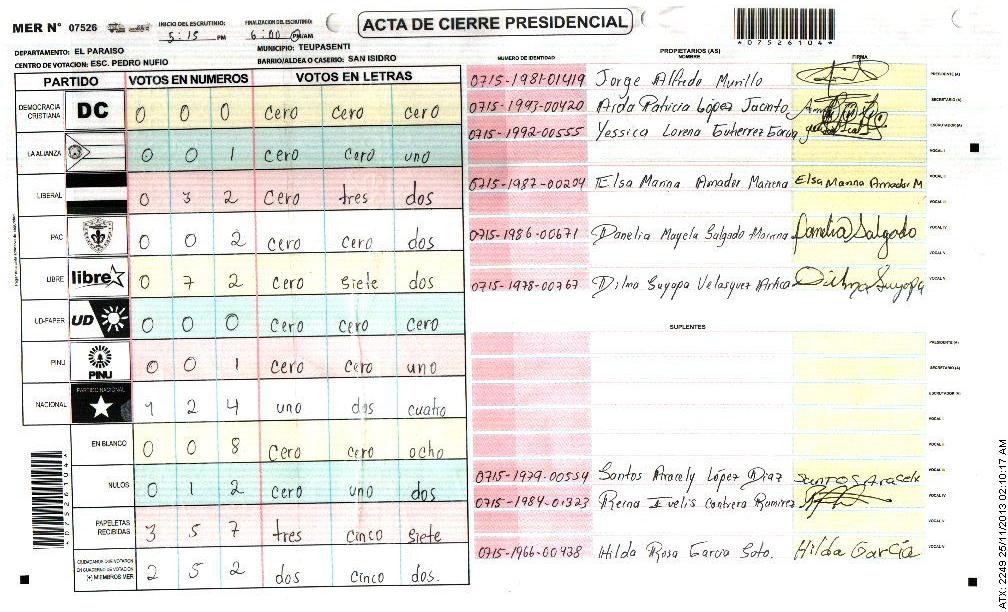 MER N° 07526 INICIO DEL ESCRUTINIO: 5:15 PM FINALIZACION DEL ESCRUTINIO: 6:00 PM/AM ACTA DE CIERRE PRESIDENCIAL *07526104*
DEPARTAMENTO: EL PARAISO MUNICIPIO: TEUPASENTI
CENTRO DE VOTACION: ESC. PEDRO NUFIO BARRIO/ALDEA O CASERIO: SAN ISIDRO
PARTIDO VOTOS EN NUMEROS VOTOS EN LETRAS
DEMOCRACIA CRISTIANA DC 0 0 0 cero cero cero
LA ALIANZA 0 0 1 cero cero uno
LIBERAL 0 3 2 cero tres dos
PAC 0 0 2 cero cero dos
LIBRE libre 0 7 2 cero siete dos
UD-FAPER UD 0 0 0 cero cero cero
PINU PINU 0 0 1 cero cero uno
NACIONAL PARTIDO NACIONAL 1 2 4 uno dos cuatro
EN BLANCO 0 0 8 cero cero ocho
NULOS 0 1 2 cero uno dos
PAPELETAS RECIBIDAS 3 5 7 tres cinco siete
CIUDADANOS QUE VOTARON EN CUADERNO DE VOTACION (+) MIEMBROS MER 2 5 2 dos cinco dos.
*07526104*
PROPIETARIOS (AS)
NUMERO DE IDENTIDAD NOMBRE FIRMA
0715-1981-01419 Jorge Alfredo Murillo PRESIDENTE (A)
0715-1993-00420 Aida Patricia López Jacinto SECRETARIO (A)
0715-1992-00555 Yessica Lorena Gutierrez Garcia ESCRUTADOR (A)
VOCAL I
0715-1987-00204 Elsa Marina Amador Mairena Elsa Marina Amador M VOCAL II
VOCAL III
0715-1986-00671 Danelia Mayela Salgado Moreno Danelia Salgado VOCAL IV
VOCAL V
0715-1978-00767 Dilma Suyapa Velasquez Dilma Suyapa
SUPLENTES
PRESIDENTE (A)
SECRETARIO (A)
ESCRUTADOR (A)
VOCAL I
VOCAL II
0715-1979-00554 Santos Aracely López Diaz Santos Aracely VOCAL III
0715-1984-01323 Reina Evelis Contrera Ramirez VOCAL IV
VOCAL V
0715-1966-00438 Hilda Rosa Garcia Soto. Hilda García
ATX: 2249 25/11/2013 02:10:17 AM